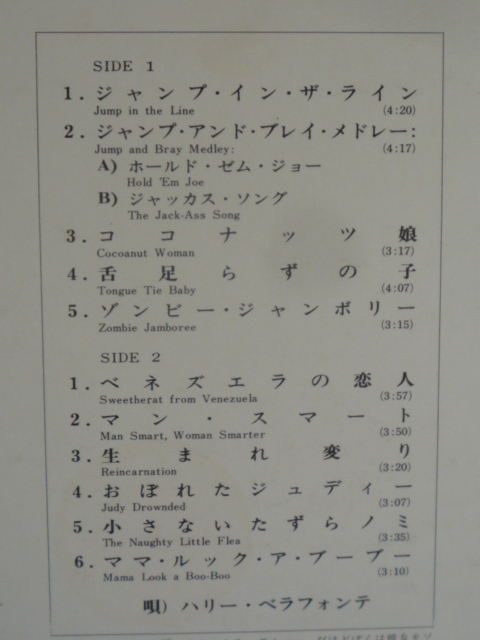 SIDE 1
1. ジャンプ・イン・ザ・ライン
Jump in the Line (4:20)
2. ジャンプ・アンド・ブレイ・メドレー:
Jump and Bray Medley: (4:17)
A) ホールド・ゼム・ジョー
Hold 'Em Joe
B) ジャッカス・ソング
The Jack-Ass Song
3. ココナッツ娘
Cocoanut Woman (3:17)
4. 舌足らずの子
Tongue Tie Baby (4:07)
5. ゾンビー・ジャンボリー
Zombie Jamboree (3:15)
SIDE 2
1. ベネズエラの恋人
Sweetherat from Venezuela (3:57)
2. マン・スマート
Man Smart, Woman Smarter (3:50)
3. 生まれ変り
Reincarnation (3:20)
4. おぼれたジュディー
Judy Drownded (3:07)
5. 小さないたずらノミ
The Naughty Little Flea (3:35)
6. ママ・ルック・ア・ブーブー
Mama Look a Boo-Boo (3:10)
唄) ハリー・ベラフォンテ